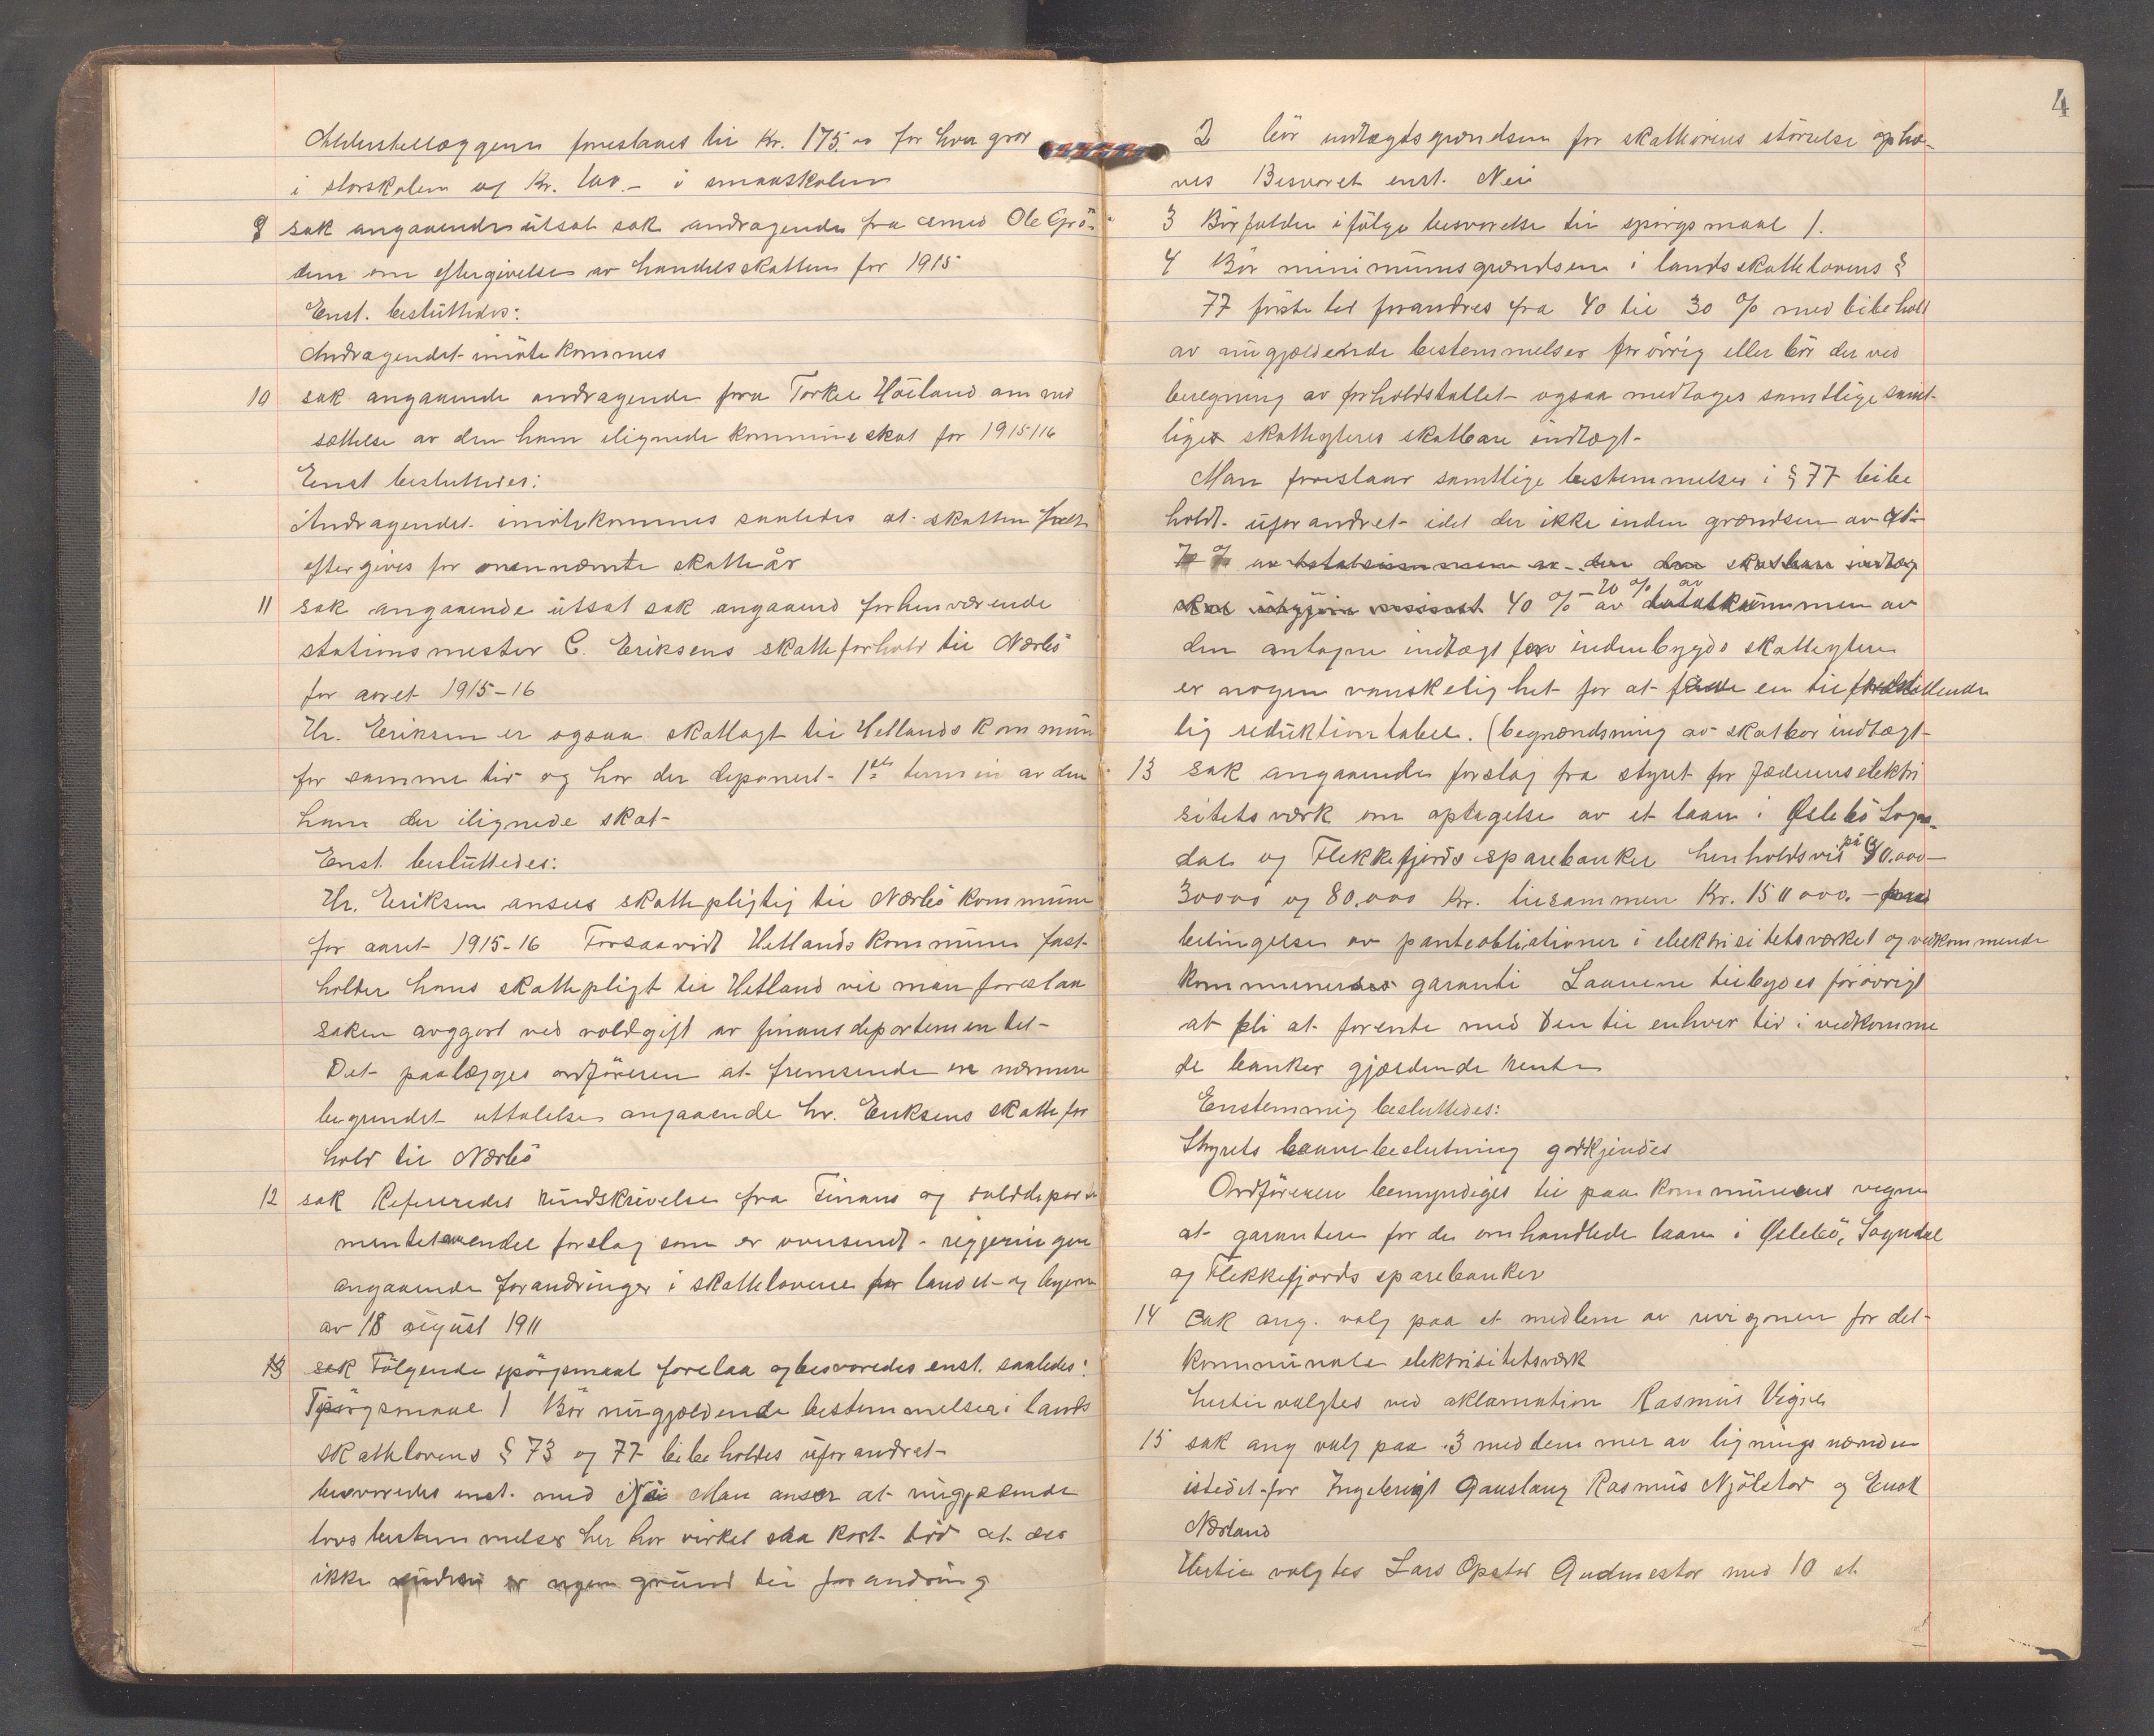 Alderstillæggene foreslaaes til Kr. 175.00 for hver grad
i storskolen og Kr. 100.- i smaaskolen
9 sak angaaende utsat sak andragende fra smed Ole Grö-
dem om eftergivelse av handelsskatten for 1915
Enst. besluttedes:
Andragendet imötekommes
10 sak angaaende andragende fra Torkel Höiland om ned
sættelse av den ham ilignede kommuneskat for 1915/16
Enst besluttedes:
Andragendet imötekommes saaledes at skatten
eftergives for ovennævnte skatteår
11 sak angaaende utsat sak angaaend forhenværende
stationsmester C. Eriksens skatteforhold til Nærbö
for aaret 1915-16
Hr. Eriksen er ogsaa skatlagt til Hetlands kommun
for samme tid og har der deponert 1ste termin av den
ham der ilignede skat-
Enst. besluttedes:
Hr. Eriksen ansees skattepligtig til Nærbö kommune
for aaret 1915-16 Forsaavidt Hetlands kommune fast-
holder hans skattepligt til Hetland vil man foreslaa
saken avgjort ved voldgift av finansdepartementet-
Det paalægges ordföreren at fremsende en nærmere
begrundet uttalelse angaaende hr. Eriksens skattefor
hold til Nærbö
12 sak Refereredes rundskrivelse fra Finans og tolddepar te
mentet endel forslag som er oversendt regjeringen
angaaende forandringer i skattelovene for landet og byerne
av 18 august 1911
13 sak Fölgende spörgsmaal forelaa og besvaredes enst. saaledes:
Spörgsmaal 1 Bör nugjældende bestemmelser i lands
skattelovens § 73 og 77 bibeholdes uforandret-
besvaredes enst. med Man anser at nugjældende
lovs bestemmelser her har virket saa kort tid at der
ikke er nogen grund til forandring
4
2 bör indtægtsgrændsen for skatteörens störrelse ophæ-
ves Besvaret enst. Nei
3 Bortfalder ifölge besvarelse til spörgsmaal 1.
4 Bör minimumsgrændsen i landsskattelovens §
77 förste led forandres fra 40 til 30 % med bibehold
av nugjældende bestemmelser forövrig eller bör der ved
beregning av forholdstallet ogsaa medtages samtlige samt-
liges skatteyteres skatbare indtægt-
Man foreslaar samtlige bestemmelser i § 77 bibe
holdt uforandret idet der ikke inden grændsen av
av totalsummen av den den skatbare indtæg
skal utgjöre 40 % - 70 % av totalsummen av
den antagne indtægt for indenbygds skatteytere
er nogen vanskelighet for at finde en tilfredstillende
lig reduktiontabel. (begrændsning av skatbar indtægt-
13 sak angaaende forslag fra styret for Jæderens elektri
sitetsværk om optagelse av et laan i Øslebö Sogn-
dal og Flekkefjords sparebanker henholdsvis på 40.000-
30000 og 80.000 Kr. tilsammen Kr. 150 000. -
betingelse av panteobliationer i elektrisitetsverket og vedkommende
kommuners garanti Laanene tilbydes forövrigt
at bli at forente med den til enhver tid i vedkomme
de banker gjældende rente
Enstemmig besluttedes:
Styrets laanebeslutning godkjendes
Ordföreren bemyndiges til paa kommunens vegne
at garantere for de omhandlede laan i Øslebö, Sogndal
og Flekkefjords sparebanker
14 Sak ang. valg paa et medlem av revisjonen for det
kommunale elektrisitetsværk
hertil valgtes ved aklamation Rasmus Vigre
15 sak ang valg paa 3 meddemmer av ligningsnævnden
istedet for Ingebrigt Gauslang Rasmus Njölstad og Enok
Nærland
Hertil valgtes Lars Opstad Gudmestad med 10 st.